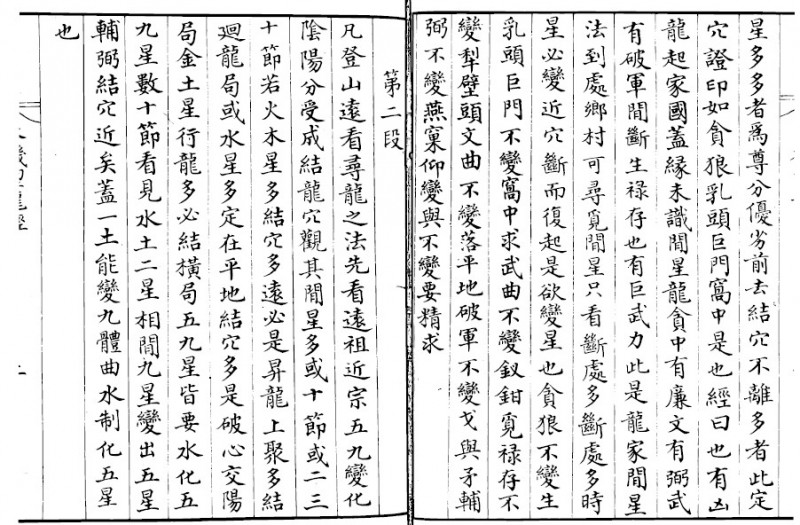 星多多者為尊分優劣前去結穴不離多者此定
穴證印如貪狼乳頭巨門窩中是也經曰也有凶
龍起家國蓋緣未識間星龍貪中有廉文有弼武
有破軍間斷生祿存也有巨武力此是龍家間星
法到處鄉村可尋覓間星只看斷處多斷處多時
星必變近穴斷而復起是欲變星也貪狼不變生
乳頭巨門不變窩中求武曲不變釵鉗覓祿存不
變犁壁頭文曲不變落平地破軍不變戈與矛輔
弼不變燕窠仰變與不變要精求
第二段
凡登山遠看尋龍之法先看遠祖近宗五九變化
陰陽分受成結龍穴觀其間星多或十節或二三
十節若火木星多結穴多遠必是昇龍上聚多結
廻龍局或水星多定在平地結穴多是破心交陽
局金土星行龍多必結橫局五九星皆要水化五
九星數十節看見水土二星相間九星變出五星
輔弼結穴近矣蓋一土能變九體曲水制化五星
也